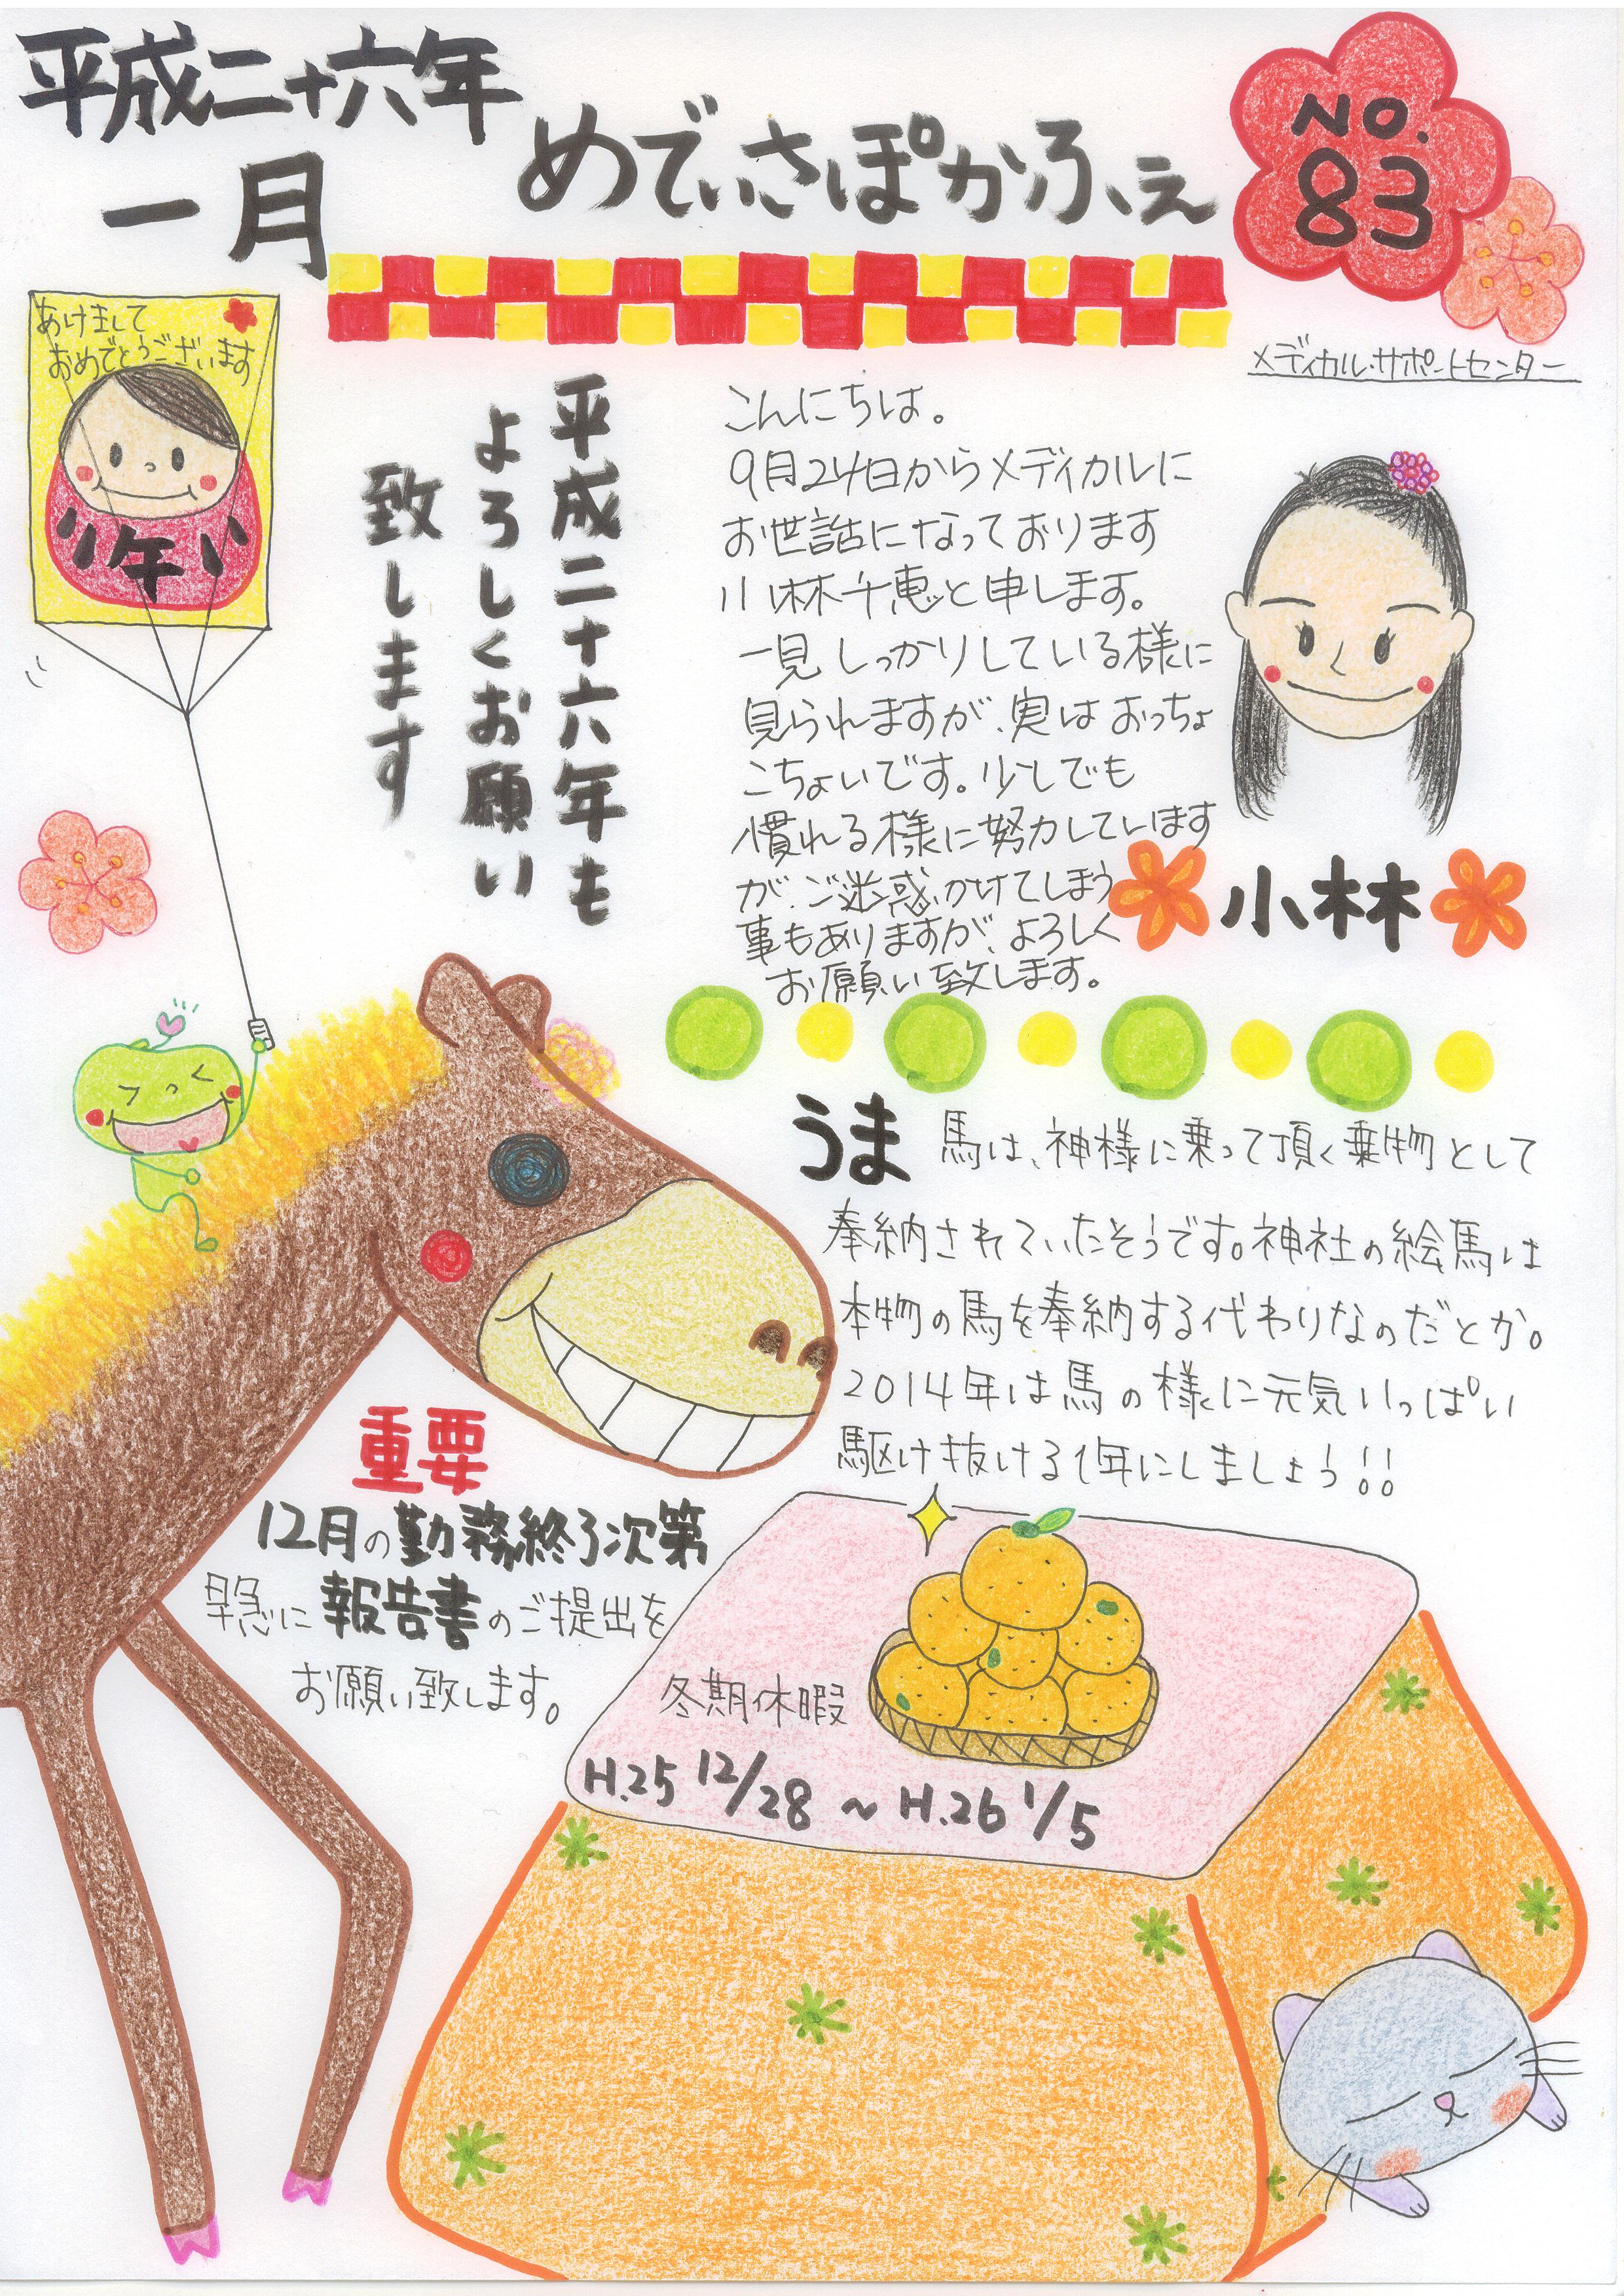 平成二十六年
一月
めでぃさぽかふぇ
NO.
83
メディカル・サポートセンター
あけまして
おめでとうございます
午
平成二十六年も
よろしくお願い
致します
こんにちは。
9月24日からメディカルに
お世話になっております
小林千恵と申します。
一見しっかりしている様に
見られますが、実はおっちょ
こちょいです。少しでも
慣れる様に努力しています
が、ご迷惑かけてしまう
事もありますが、よろしく
お願い致します。
小林
うま 馬は、神様に乗って頂く乗物として
奉納されていたそうです。神社の絵馬は
本物の馬を奉納する代わりなのだとか。
2014年は馬の様に元気いっぱい
駆け抜ける1年にしましょう!!
重要
12月の勤務終了次第
早急に報告書のご提出を
お願い致します。
冬期休暇
H.25 12/28 ~ H.26 1/5